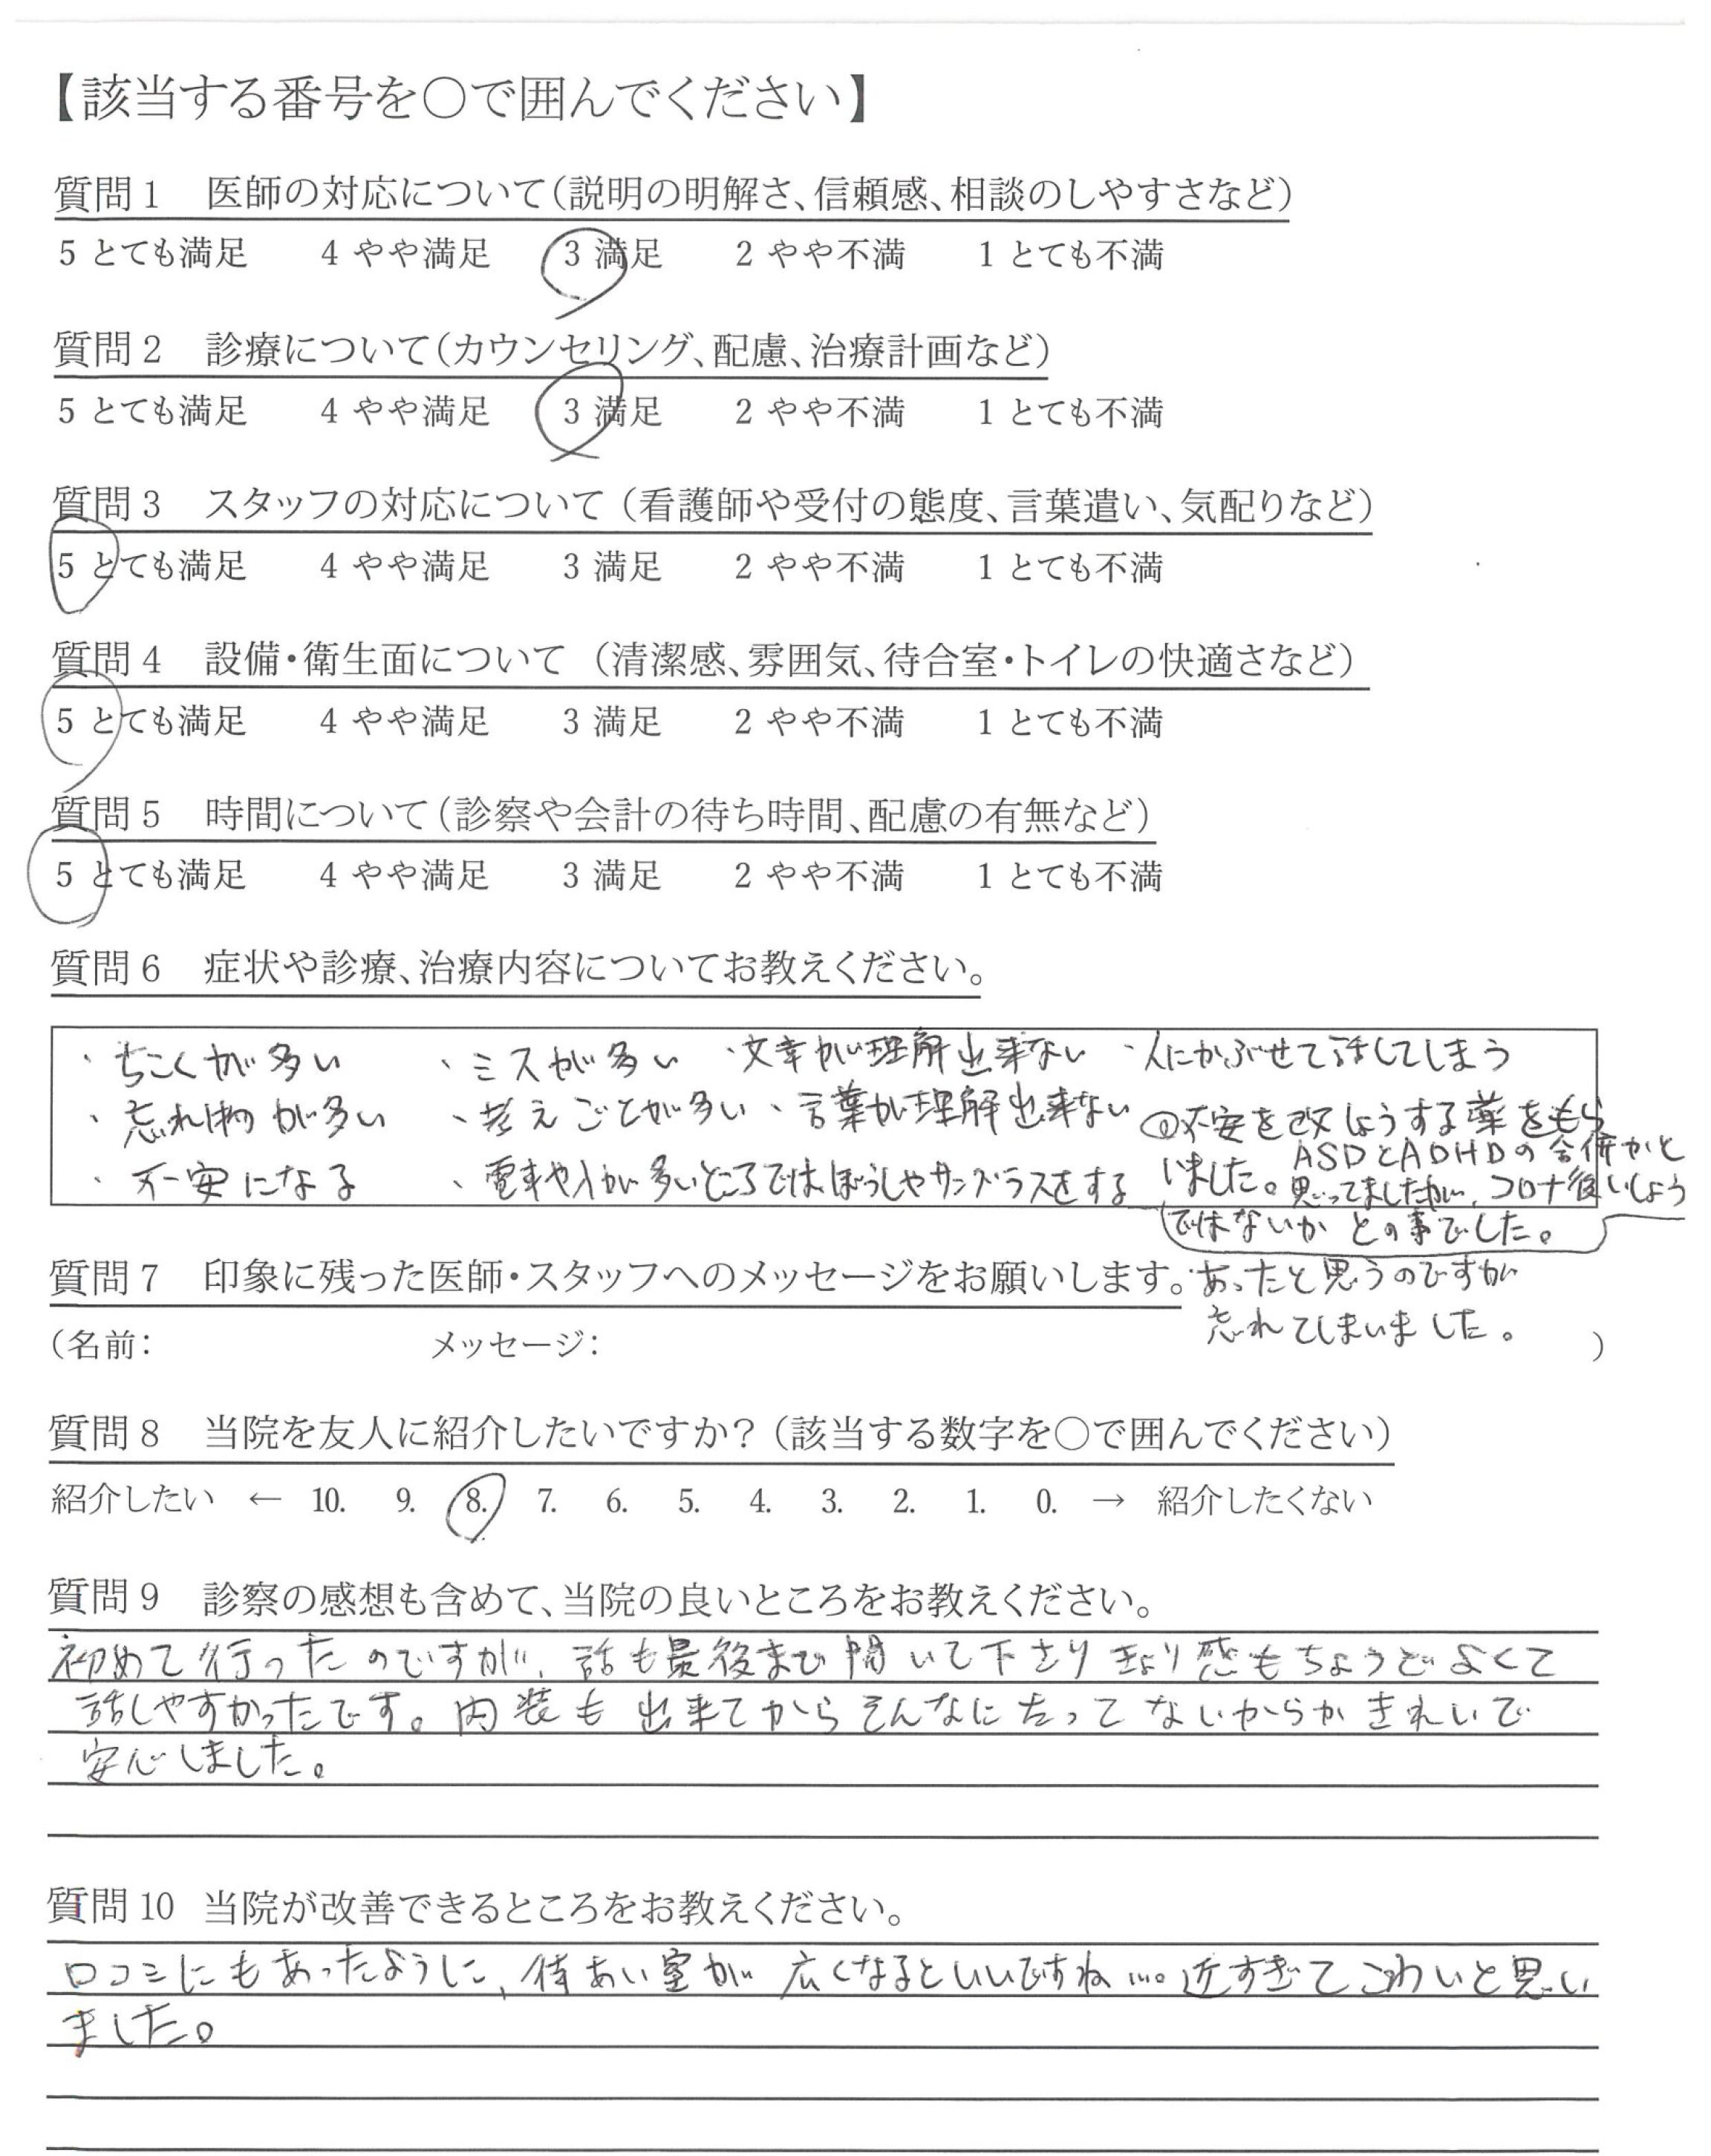 【該当する番号を○で囲んでください】
質問1 医師の対応について(説明の明解さ、信頼感、相談のしやすさなど)
5 とても満足 4 やや満足 3 満足 2 やや不満 1 とても不満
質問2 診療について(カウンセリング、配慮、治療計画など)
5 とても満足 4 やや満足 3 満足 2 やや不満 1 とても不満
質問3 スタッフの対応について(看護師や受付の態度、言葉遣い、気配りなど)
5 とても満足 4 やや満足 3 満足 2 やや不満 1 とても不満
質問4 設備・衛生面について (清潔感、雰囲気、待合室・トイレの快適さなど)
5 とても満足 4 やや満足 3 満足 2 やや不満 1 とても不満
質問5 時間について(診察や会計の待ち時間、配慮の有無など)
5 とても満足 4 やや満足 3 満足 2 やや不満 1 とても不満
質問6 症状や診療、治療内容についてお教えください。
・ちこくが多い ・ミスが多い ・文章が理解出来ない ・人にかぶせて話してしまう
・忘れ物が多い ・考えごとが多い ・言葉が理解出来ない
・不安になる ・電車や人が多いところではぼうしやサングラスをする
◎不安を改しようする薬をもら
いました。ASDとADHDの合併かと
思ってましたが、コロナ後いしょう
ではないかとの事でした。
質問7 印象に残った医師・スタッフへのメッセージをお願いします。
あったと思うのですが
忘れてしまいました。
(名前: メッセージ: )
質問8 当院を友人に紹介したいですか?(該当する数字を○で囲んでください)
紹介したい ← 10. 9. 8. 7. 6. 5. 4. 3. 2. 1. 0. → 紹介したくない
質問9 診察の感想も含めて、当院の良いところをお教えください。
初めて行ったのですが、話も最後まで聞いて下さりきょり感もちょうどよくて
話しやすかったです。内装も出来てからそんなにたってないからかきれいで
安心しました。
質問10 当院が改善できるところをお教えください。
口コミにもあったように、待あい室が広くなるといいですね…。近すぎてこわいと思い
ました。